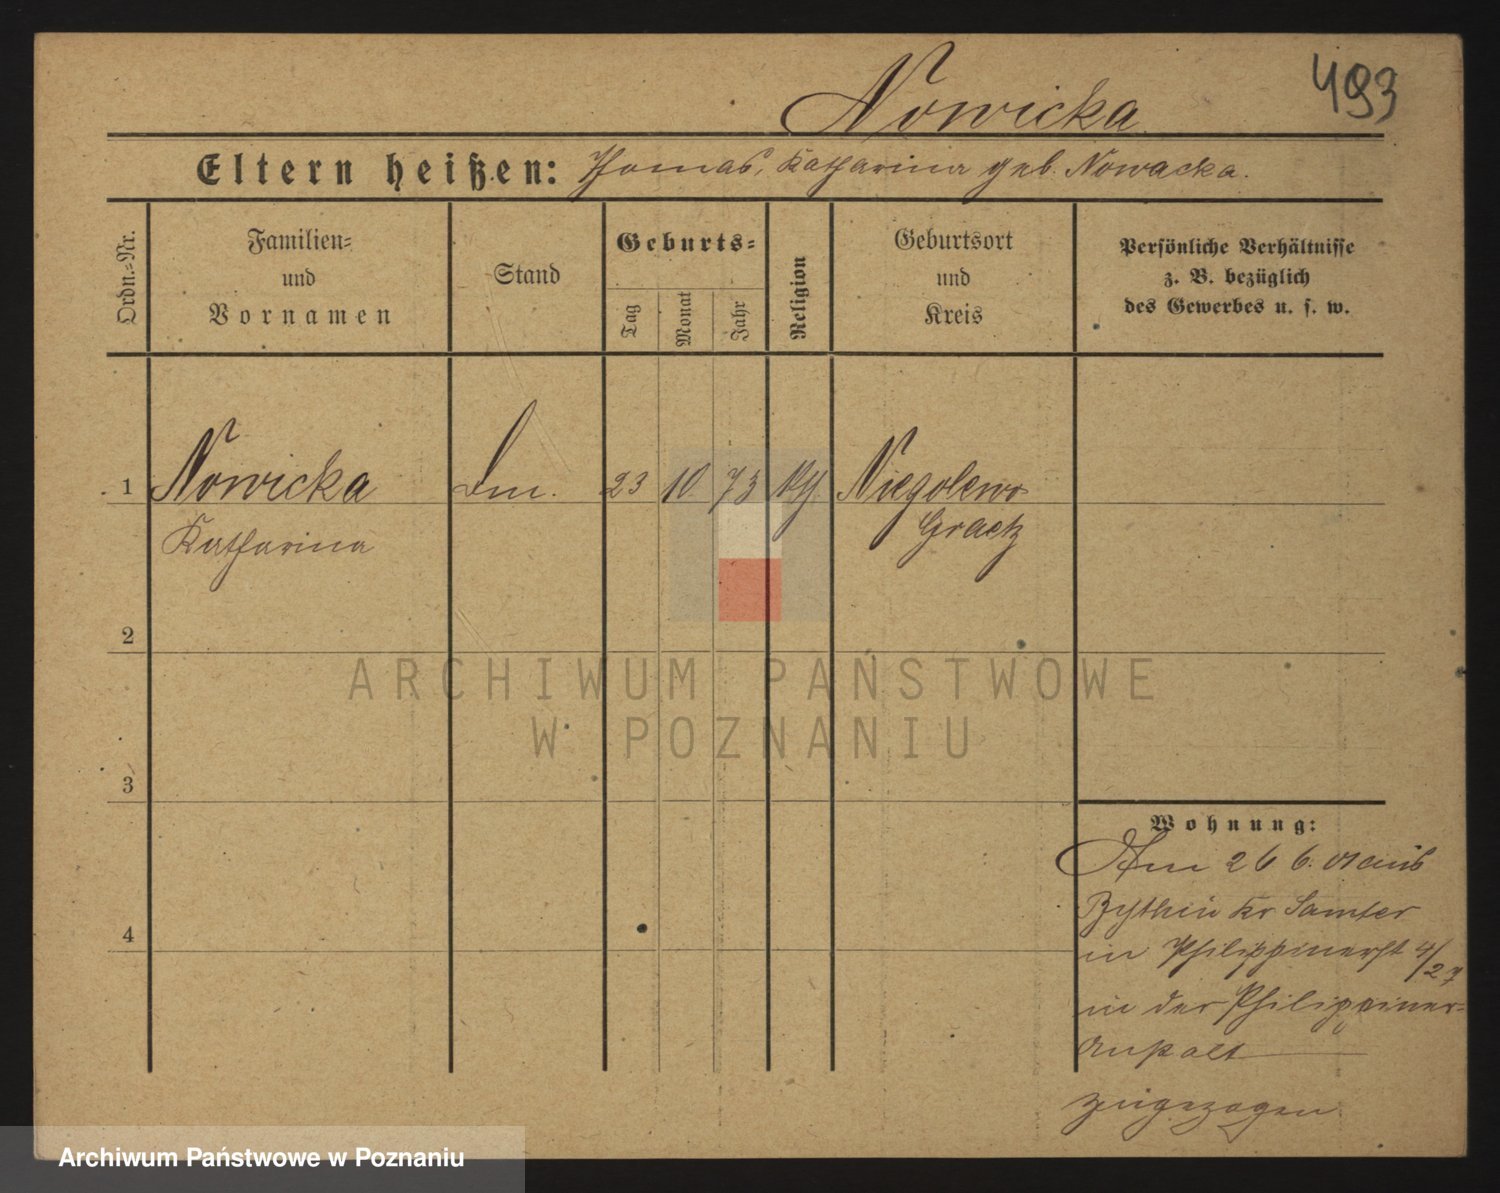 Nowicka
493
Eltern heißen: Thomas, Katharina geb. Nowacka.
Ordn.=Nr.
Familien=
und
Vornamen
Stand
Geburts=
Tag
Monat
Jahr
Religion
Geburtsort
und
Kreis
Persönliche Verhältnisse
z. B. bezüglich
des Gewerbes u. s. w.
1 Nowicka 23 10 73 Niegolewo
Katharina Graetz
2
3
4
Wohnung:
Am 26 6. 01 aus
Bythin Kr Samter
in Philippinerst 4/27
in der Philippiner=
Anstalt
zugezogen
ARCHIWUM PAŃSTWOWE
W POZNANIU
Archiwum Państwowe w Poznaniu